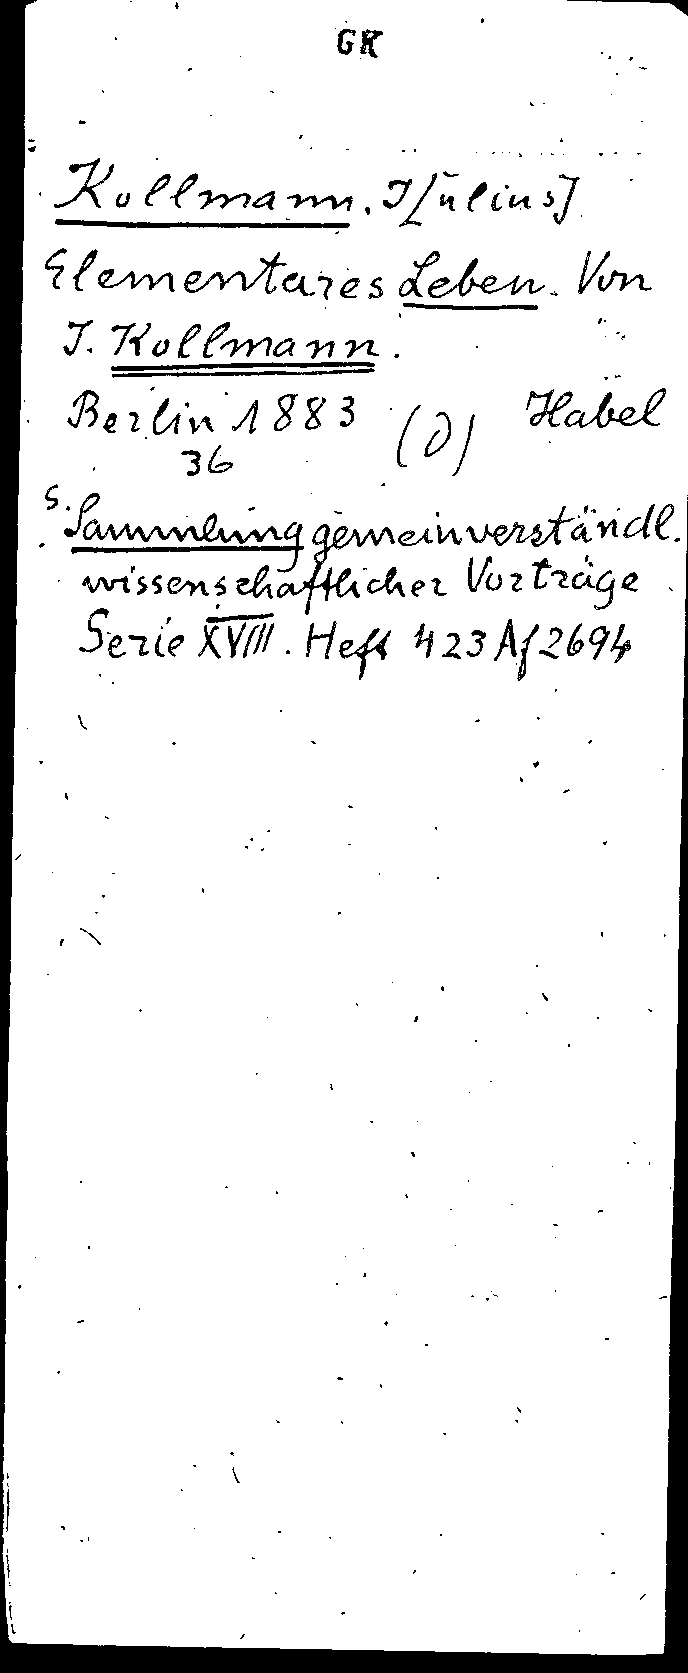 GK
Kollmann, J[ulius]
Elementares Leben. Von
J. Kollmann.
Berlin 1883 (8) Habel
36
s. Sammlung gemeinverständl.
wissenschaftlicher Vorträge
Serie XVIII. Heft 423 Af 2694